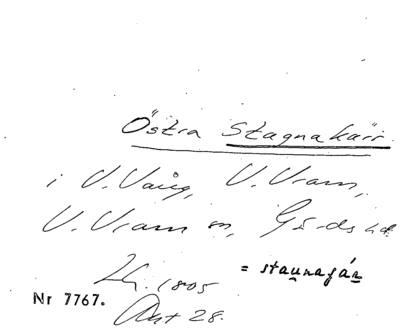 Östra Stagnakärr
i V. Vång, V. Vram,
V. Vram sn, Gärds hd.
1805
= staunaſár
Nr 7767. Akt 28.